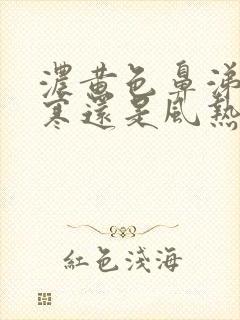 濃黃色鼻涕
寒還是風熱
紅色淺海